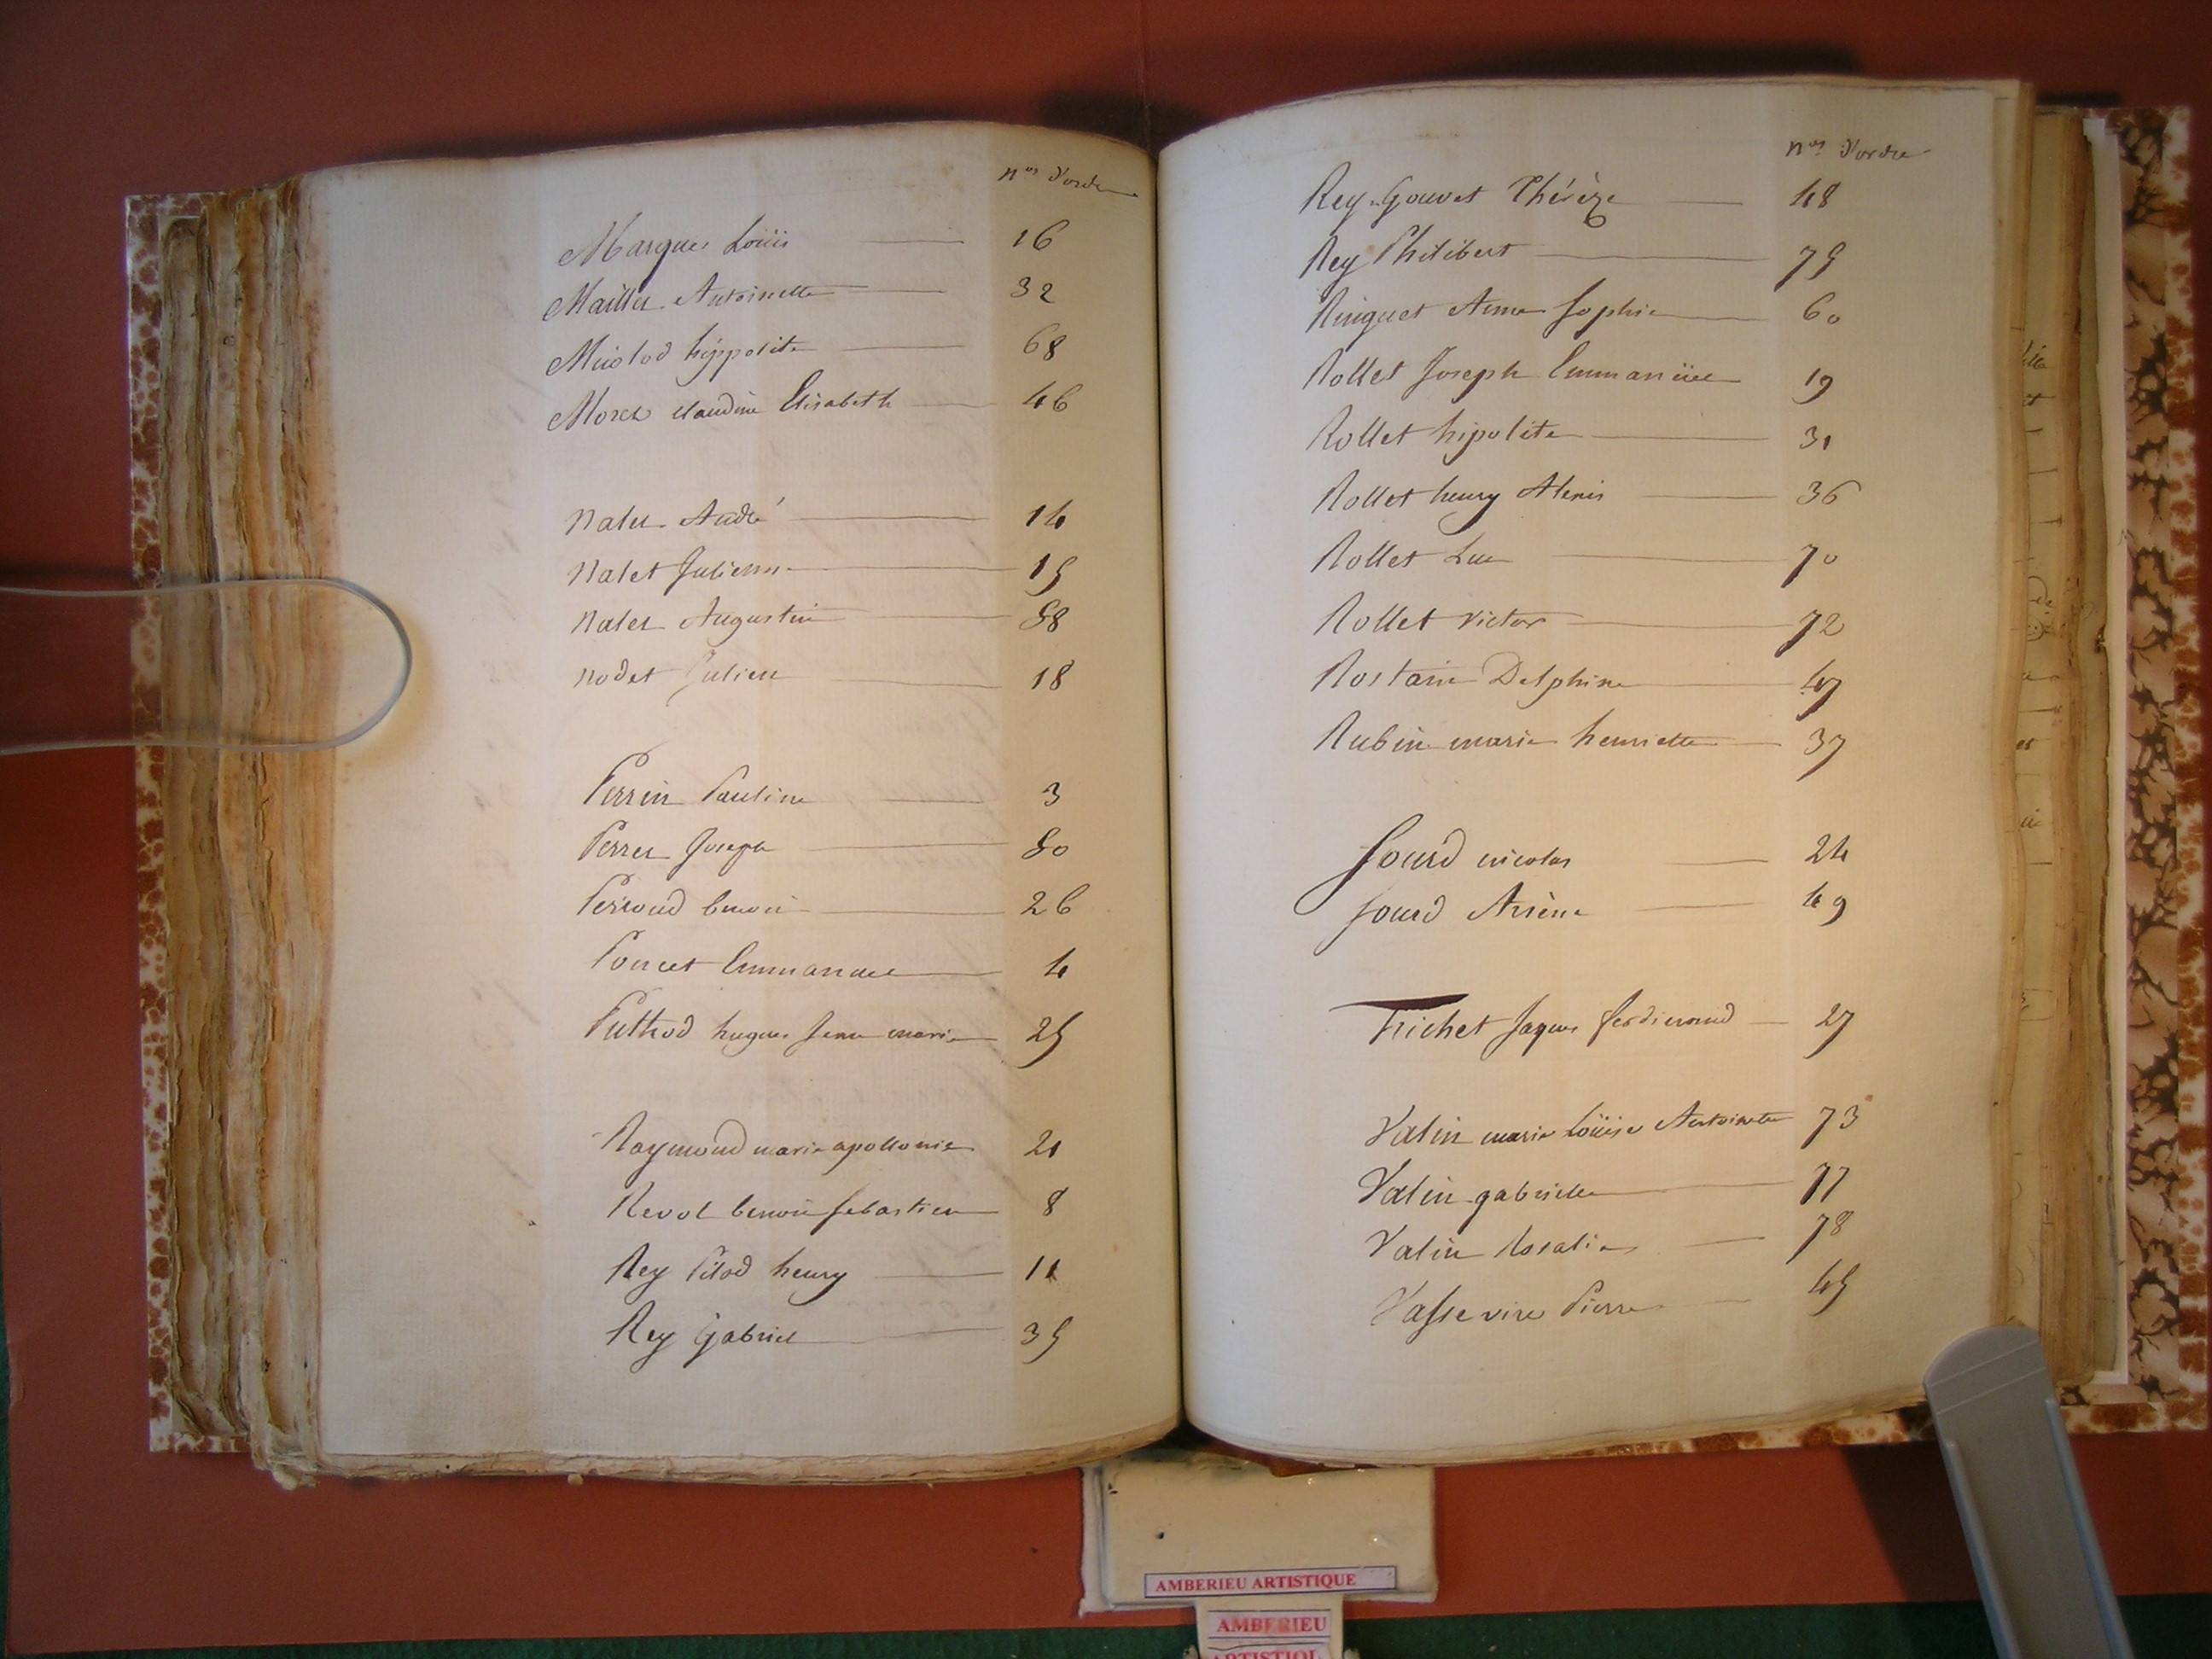 nos d'ordre
Marques Loüis 16
Maillet Antoinette 32
Miolod hÿppolite 68
Morel claudine Elisabeth 46
Nalet André 14
Nalet Julienne 15
Nalet Augustin 58
Nodet Julien 18
Perrin Pauline 3
Perret Joseph 50
Perroud benoit 26
Poncet Emmanuel 4
Puthod hugues Jean marie 25
Raymond marie apollonie 21
Revol benoit Sebastien 8
Rey Pilod henry 11
Rey Gabriel 35
nos d'ordre
Rey-Gouvet Thérèze 48
Rey Philibert 75
Ringuet Anne Sophie 60
Rollet Joseph Emmanüel 19
Rollet hipolite 31
Rollet henry Alexis 36
Rollet Luc 70
Rollet Victor 72
Rostain Delphine 47
Rubin marie henriette 37
Sourd nicolas 24
Sourd Arsène 49
Trichet Jaques ferdinand 27
Valin marie Loüise Antoinette 73
Valin gabrielle 77
Valin Rosalie 78
Vassevire Pierre 45
AMBERIEU ARTISTIQUE
AMBERIEU
ARTISTIQU